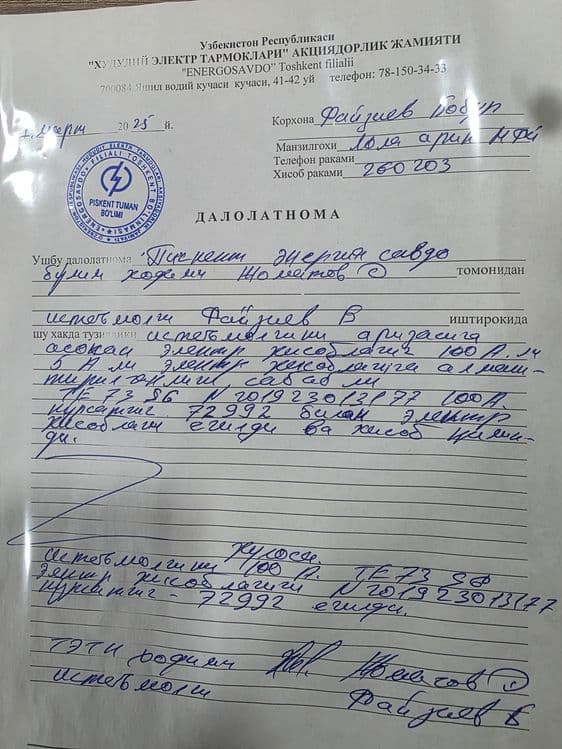 Узбекистон Республикаси
"ХУДУДИЙ ЭЛЕКТР ТАРМОКЛАРИ" АКЦИЯДОРЛИК ЖАМИЯТИ
"ENERGOSAVDO" Toshkent filialii
700084 Яшил водий кучаси кучаси, 41-42 уй телефон: 78-150-34-33
март 2025 й.
Корхона Файзиев Бобур
Манзилгохи Лола арик МФЙ
Телефон раками
Хисоб раками 260203
PISKENT TUMAN
BO'LIMI
ДАЛОЛАТНОМА
Ушбу далолатнома Пискент энергия савдо
булим ходими Жоматов томонидан
истеъмолчи Файзиев В иштирокида
шу хакда тузилдики истеъмолчини аризасига
асосан электр хисоблагич 100 А. ли
5 А ли электр хисоблагичга алмаш-
тирилганлиги сабабли
TE 73 S6 N 201923013177 100 А
курсатгич 72992 билан электр
хисоблагич ечилди ва хисоб килин-
ди.
Хулоса.
истеъмолчини 100 А. TE 73 S6
электр хисоблагичи N 201923013177
курсатгич - 72992 ечилди.
ТЭТК ходими Жоматов
истеъмолчи Файзиев Б